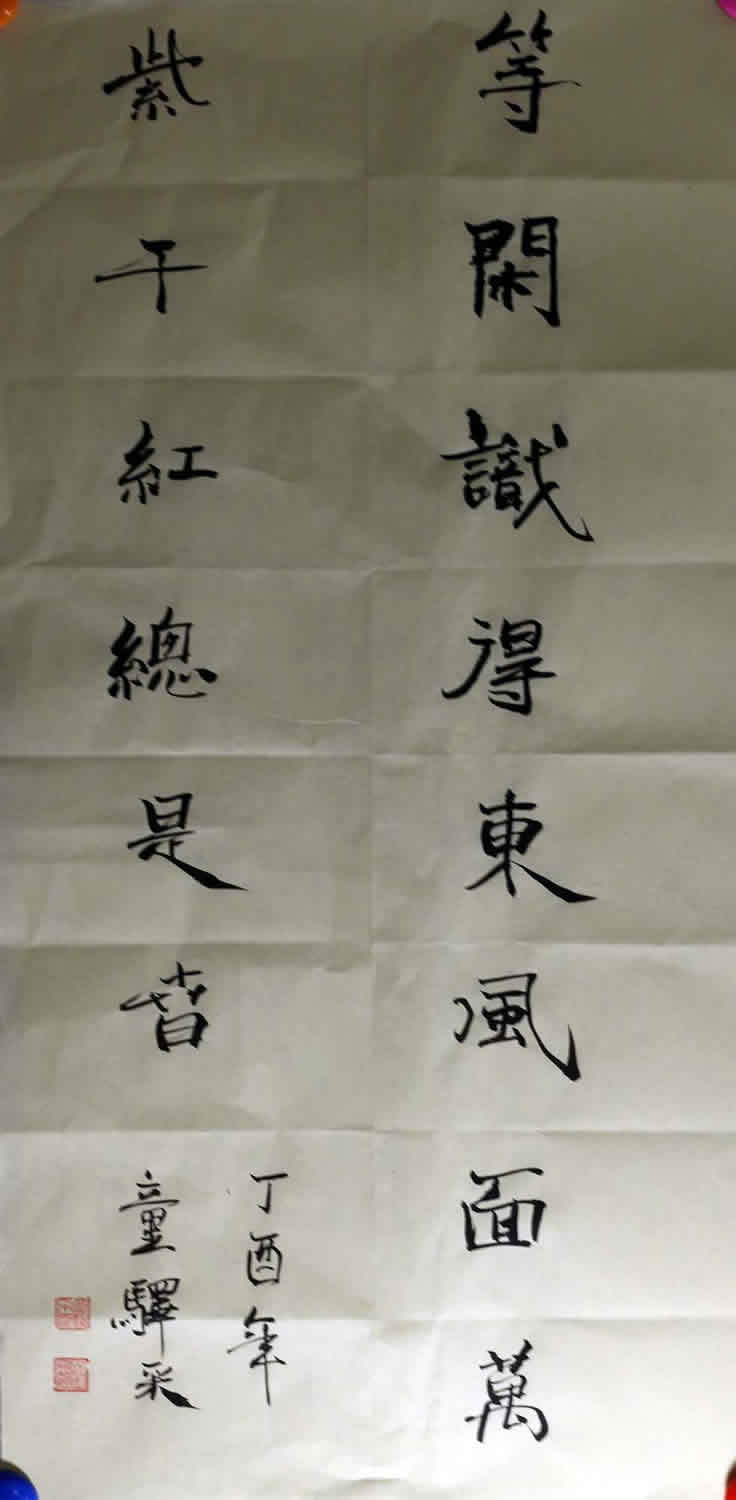 等閑識得東風面萬
紫千紅總是旾
丁酉年
童驛采